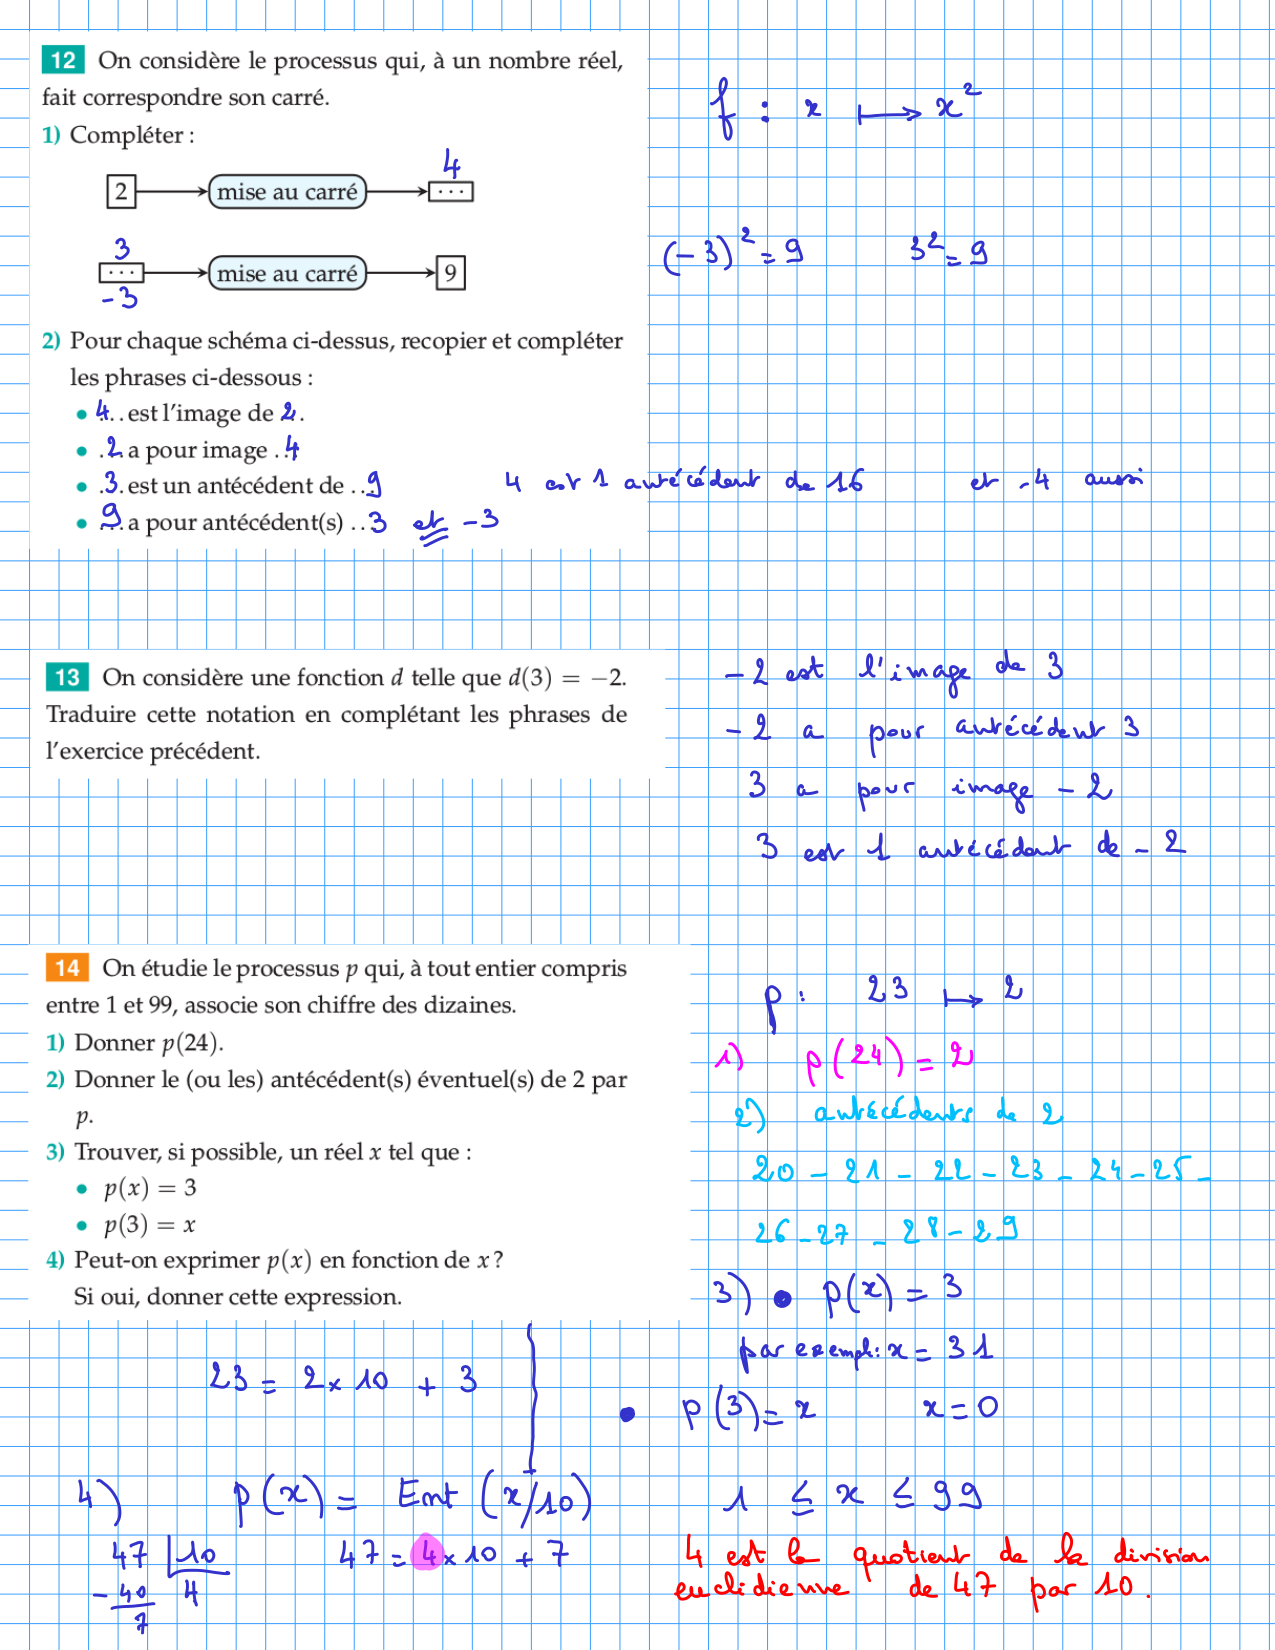 12 On considère le processus qui, à un nombre réel,
fait correspondre son carré.
f : x ⟼ x²
1) Compléter :
4
2 → mise au carré → ...
3
... → mise au carré → 9
-3
(-3)² = 9 3² = 9
2) Pour chaque schéma ci-dessus, recopier et compléter
les phrases ci-dessous :
• 4.. est l'image de 2.
• .2 a pour image ..4
• .3. est un antécédent de ..9 4 est 1 antécédent de 16 et -4 aussi
• 9... a pour antécédent(s) ..3 et -3
13 On considère une fonction d telle que d(3) = −2.
Traduire cette notation en complétant les phrases de
l'exercice précédent.
-2 est l'image de 3
-2 a pour antécédent 3
3 a pour image -2
3 est 1 antécédent de -2
14 On étudie le processus p qui, à tout entier compris
entre 1 et 99, associe son chiffre des dizaines.
1) Donner p(24).
2) Donner le (ou les) antécédent(s) éventuel(s) de 2 par
p.
3) Trouver, si possible, un réel x tel que :
• p(x) = 3
• p(3) = x
4) Peut-on exprimer p(x) en fonction de x ?
Si oui, donner cette expression.
p : 23 ⟼ 2
1) p(24) = 2
2) antécédents de 2
20 - 21 - 22 - 23 - 24 - 25 -
26 - 27 - 28 - 29
3) • p(x) = 3
par exempl : x = 31
23 = 2 × 10 + 3
• p(3) = x x = 0
4) p(x) = Ent (x/10) 1 ≤ x ≤ 99
47 | 10 47 = 4 × 10 + 7
- 40 4
7
4 est le quotient de la division
euclidienne de 47 par 10.